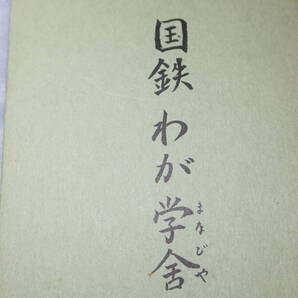 国鉄わが学舎
まなびや